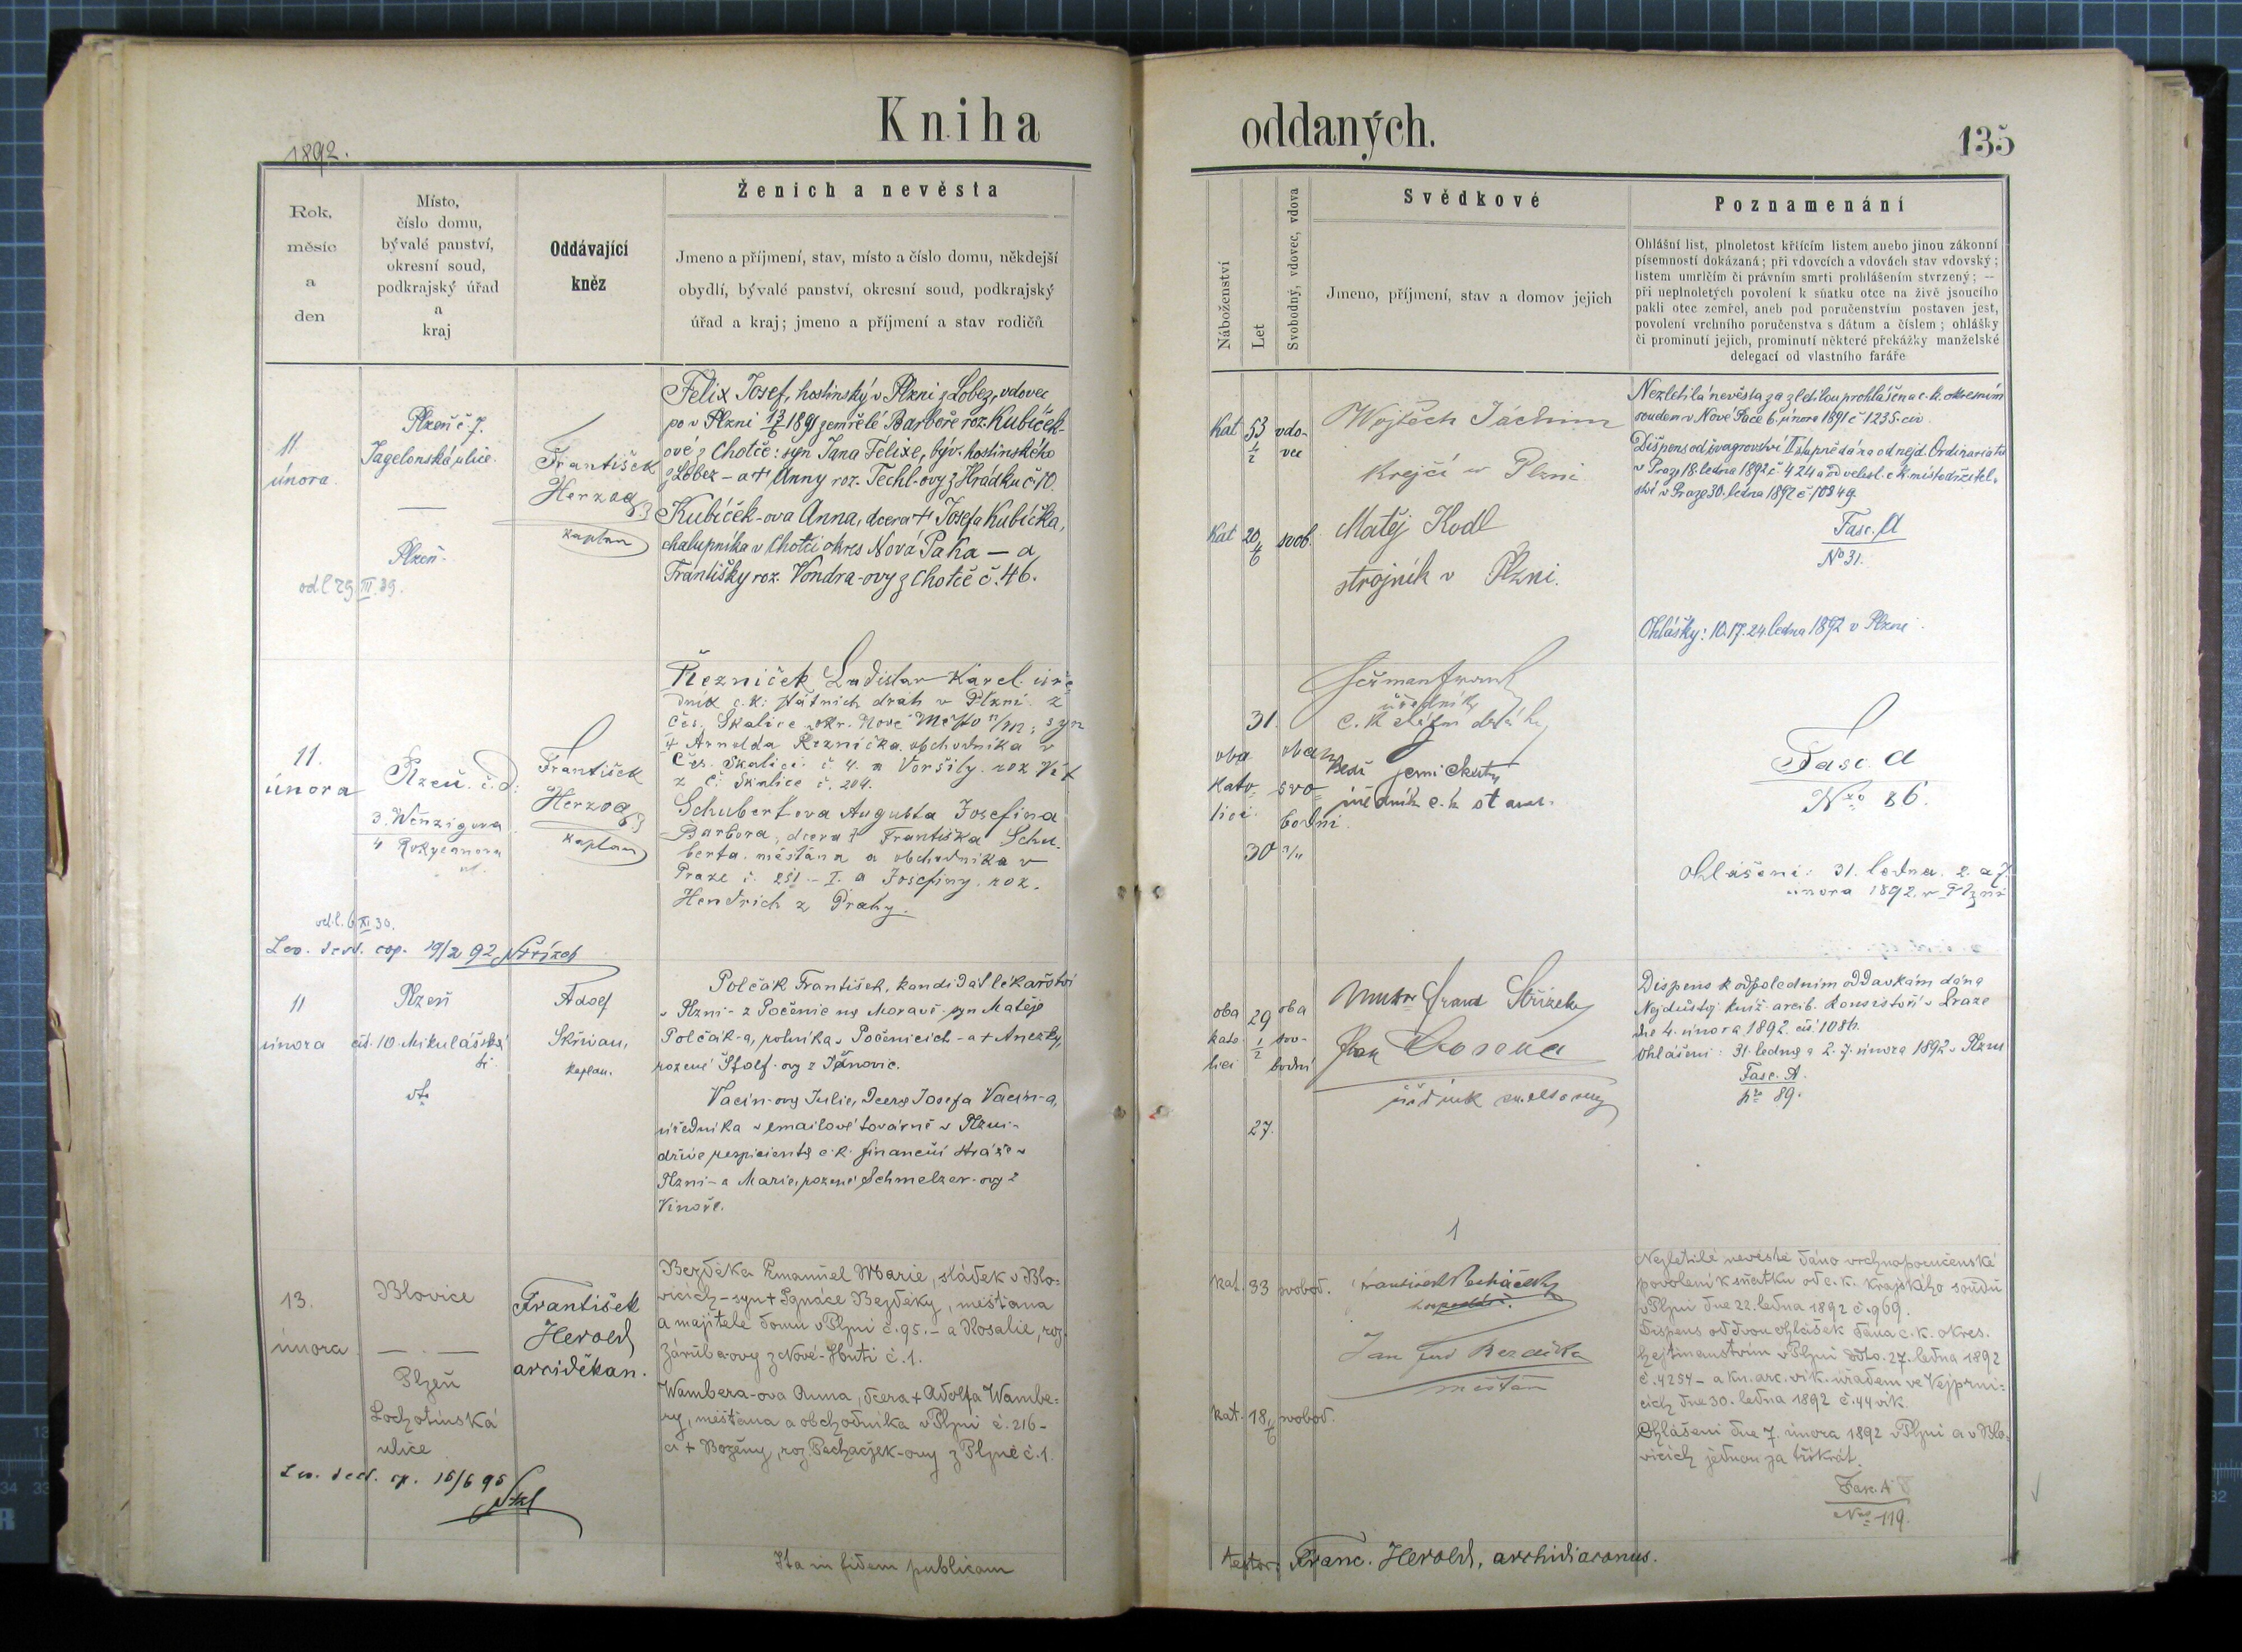 Kniha
1892.
Rok,
měsíc
a
den
Místo,
číslo domu,
bývalé panství,
okresní soud,
podkrajský úřad
a
kraj
Oddávající
kněz
Ženich a nevěsta
Jmeno a příjmení, stav, místo a číslo domu, někdejší
obydlí, bývalé panství, okresní soud, podkrajský
úřad a kraj; jmeno a příjmení a stav rodičů
11.
února.
Plzeň č. 7.
Jagelonská ulice.
Plzeň.
odl. 29. III. 39.
František
Herzog
kaplan
Felix Josef, hostinský v Plzni z Lobez, vdovec
po v Plzni 13/6 1891 zemřelé Barboře roz. Kubíček-
ové z Chotče: syn Jana Felixe, býv. hostinského
z Lobez – a + Anny roz. Techl-ovy z Hrádku č. 10.
Kubíček-ova Anna, dcera + Josefa Kubíčka,
chalupníka v Chotči okres Nová Paka – a
Františky roz. Vondra-ovy z Chotče č. 46.
11.
února
Plzeň. č. d.
3. Wenzigova
4 Rokycanova
ul.
odl. 6. XI. 30.
Lev. 19/2 92
František
Herzog
kaplan
Řezníček Ladislav Karel. úře
dník c. k. státních drah v Plzni. z
Čes. Skalice okr. Nové Město n/M; syn
+ Arnolda Řezníčka. obchodníka v
Čes. Skalici č 4. a Voršily. roz
z Č. Skalice č. 204.
Schubert-ova Augusta Josefina
Barbora, dcera + Františka Schu-
berta. měšťana a obchodníka v
Praze č. 251 - I. a Josefiny. roz.
Hendrich z Prahy.
11
února
Plzeň
čís. 10. Mikulášská
tř.
Adolf
Skřivan,
kaplan.
Polčák František, kandidát lékařství
v Plzni - z Počenic na Moravě - syn Matěje
Polčák-a, rolníka v Počenicích - a + Anežky,
rozené Štolf-ovy z Tánovic.
Vacín-ova Julie, dcera Josefa Vacín-a,
úředníka v emailové továrně v Plzni -
dříve respicienta c. k. finanční stráže v
Plzni - a Marie, rozené Schmelzer-ovy z
Vinoře.
13.
února
Blovice
Plzeň
Lochotínská
ulice
František
Herold
arciděkan.
Bezděka Emanuel Marie, sládek v Blo-
vicích - syn + Ignáce Bezděky, měšťana
a majitele domu v Plzni č. 95. - a Rosalie, roz.
Záruba-ovy z Nové-Huti č. 1.
Wambera-ova Anna, dcera + Adolfa Wambe-
ry, měšťana a obchodníka v Plzni č. 216 -
a + Boženy, roz. Pechaczek-ovy z Plzně č. 1.
15/6 95
Ita in fidem publicam
oddaných.
135
Náboženství
Let
Svobodný, vdovec, vdova
Svědkové
Jmeno, příjmení, stav a domov jejich
Poznamenání
Ohlášní list, plnoletost křticím listem anebo jinou zákonní
písemností dokázaná; při vdovcích a vdovách stav vdovský;
listem umrlčím či právním smrti prohlášením stvrzený; —
při neplnoletých povolení k sňatku otce na živě jsoucího
pakli otec zemřel, aneb pod poručenstvím postaven jest,
povolení vrchního poručenstva s dátum a číslem; ohlášky
či prominutí jejich, prominutí některé překážky manželské
delegací od vlastního faráře
kat
53 1/2
vdo-
vec
kat
20 4/6
svob.
Wojtěch Jáchim
krejčí v Plzni
Matěj Kodl
strojník v Plzni.
Nezletilá nevěsta za zletilou prohlášena c. k. okresním
soudem v Nové Pace 6. února 1891 č 1235. civ.
Dispens od švagrovství II. stupně dána od nejd. Ordinariatu
v Praze 18. ledna 1892 č. 424 a od velesl. c k. místodržitel-
ství v Praze 30. ledna 1892 č 10849
Fasc. A
No 31.
Ohlášky: 10. 17. 24. ledna 1892 v Plzni.
31.
oba
kato-
líci.
oba
svo-
bodni
30 3/11
úředník
c. k. státní dráhy
úředník c. k.
Fasc. A
Nro 86.
Ohlášeni: 31. ledna. 2. a 7.
února 1892. v Plzni
oba
kato-
líci
29 1/2
oba
svo-
bodní
27.
Frant Střízek
úředník
Dispens k odpoledním oddavkám dána
Nejdůstoj. kníž. arcib. konsistoří v Praze
dne 4. února 1892. čís 1086.
Ohlášeni: 31. ledna a 2. 7. února 1892 v Plzni
Fasc. A.
89.
1
kat.
33
svobod.
kat.
18 1/6
svobod.
Jan Bezděka
měšťan
Nezletilé nevěstě dáno vrchnoporučenské
povolení k sňatku od c. k. krajského soudu
v Plzni dne 22. ledna 1892 č. 969.
Dispens od dvou ohlášek dána c. k. okres.
hejtmanstvím v Plzni ddto. 27. ledna 1892
č. 4254 - a kn. arc. vik. úřadem ve Vejprni-
cích dne 30. ledna 1892 č. 44 vik.
Ohlášeni dne 7. února 1892 v Plzni a v Blo-
vicích jednou za třikrát.
Fasc. A
Nro 119.
testor: Franc. Herold, archidiaconus.